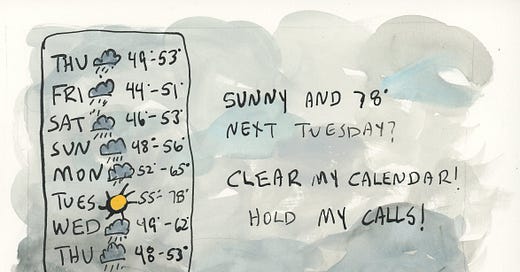 THU 49°-53°
FRI 44°-51°
SAT 46°-53°
SUN 48°-56°
MON 52°-65°
TUES 55°-78°
WED 49°-62°
THU 48-53°
SUNNY AND 78°
NEXT TUESDAY?
CLEAR MY CALENDAR!
HOLD MY CALLS!